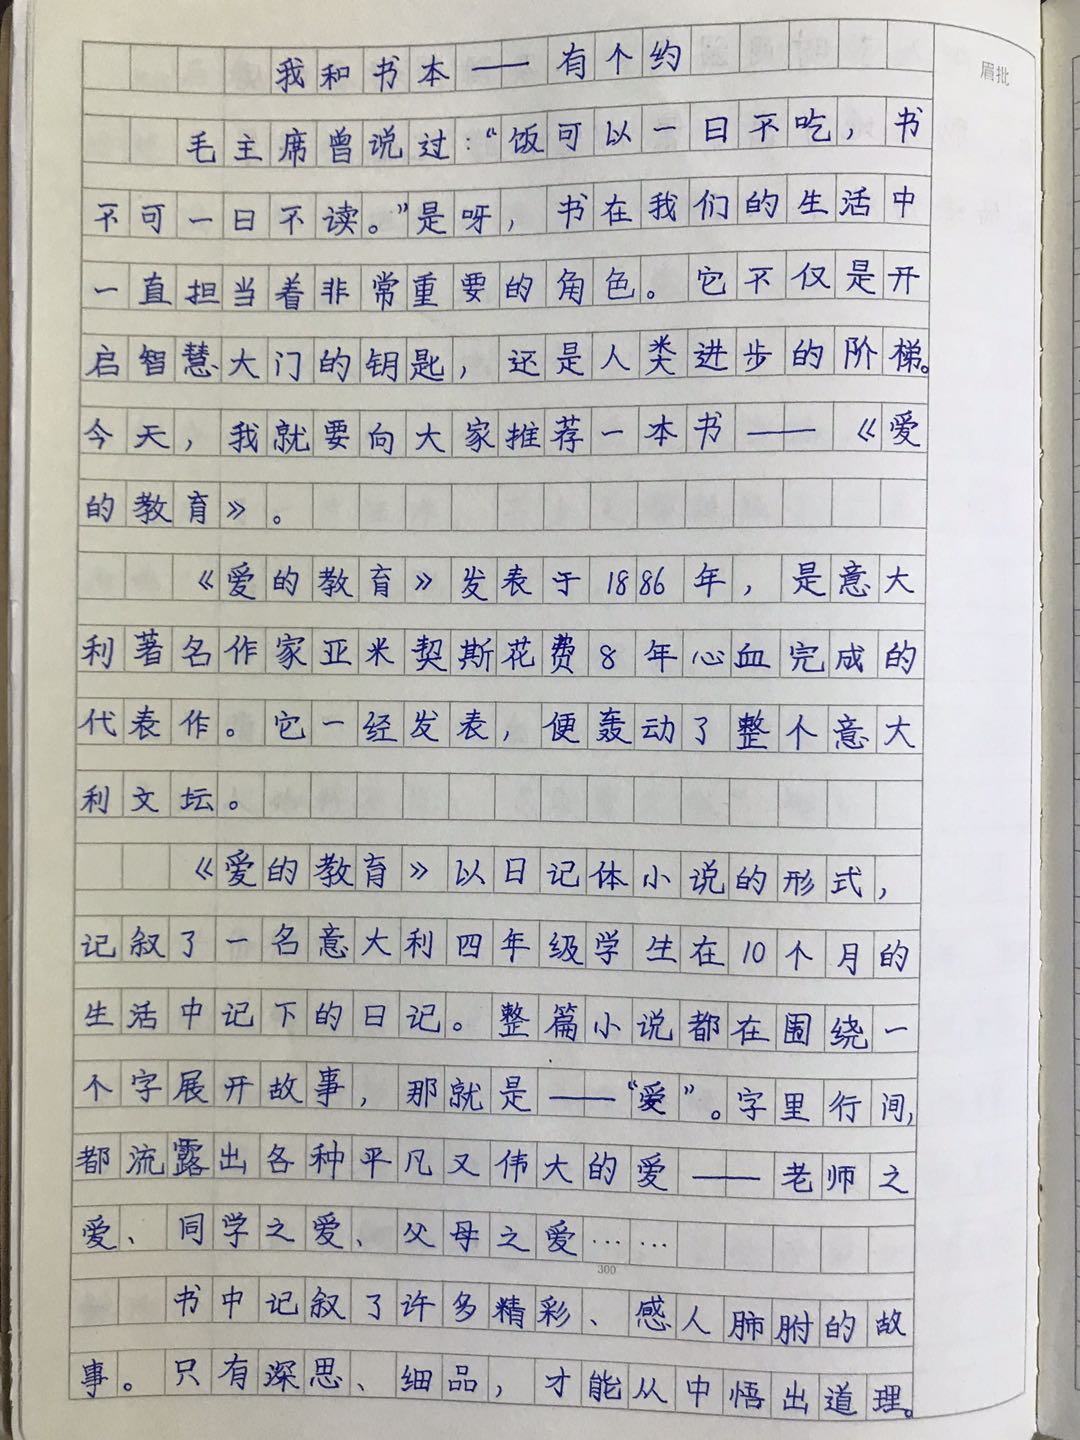 我和书本——有个约
眉批
毛主席曾说过：“饭可以一日不吃，书
不可一日不读。”是呀，书在我们的生活中
一直担当着非常重要的角色。它不仅是开
启智慧大门的钥匙，还是人类进步的阶梯。
今天，我就要向大家推荐一本书——《爱
的教育》。
《爱的教育》发表于1886年，是意大
利著名作家亚米契斯花费8年心血完成的
代表作。它一经发表，便轰动了整个意大
利文坛。
《爱的教育》以日记体小说的形式，
记叙了一名意大利四年级学生在10个月的
生活中记下的日记。整篇小说都在围绕一
个字展开故事，那就是——“爱”。字里行间，
都流露出各种平凡又伟大的爱——老师之
爱、同学之爱、父母之爱……
300
书中记叙了许多精彩、感人肺腑的故
事。只有深思、细品，才能从中悟出道理。